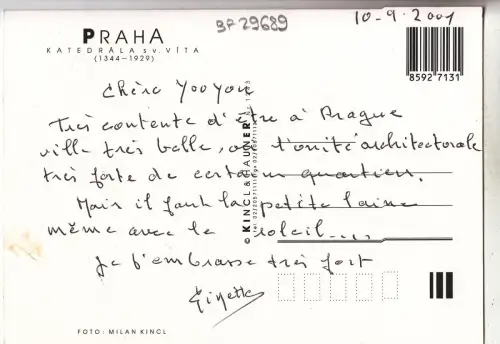 PRAHA
KATEDRÁLA sv. VÍTA
(1344–1929)
BF29689
10-9-2001
85927131
Chère Yooyou
Très contente d'être à Prague
ville très belle, où l'unité architectorale
très forte de certains quartiers.
Mais il faut la petite laine
même avec le soleil....
Je t'embrasse très fort
Ginette
© KINCL & HAUNER
FOTO: MILAN KINCL